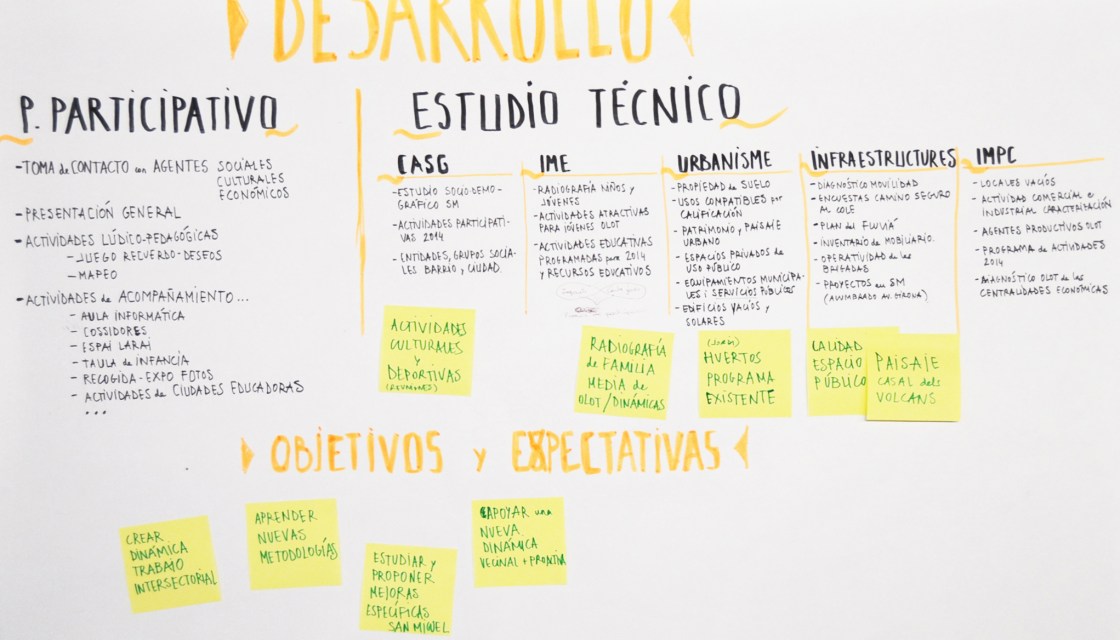 DESARROLLO
P. PARTICIPATIVO
-TOMA de CONTACTO con AGENTES SOCIALES
CULTURALES
ECONÓMICOS
-PRESENTACIÓN GENERAL
-ACTIVIDADES LÚDICO-PEDAGÓGICAS
-JUEGO RECUERDO-DESEOS
-MAPEO
-ACTIVIDADES de ACOMPAÑAMIENTO...
- AULA INFORMÁTICA
- COSSIDORES
- ESPAI LARAI
- TAULA de INFANCIA
- RECOGIDA-EXPO FOTOS
- ACTIVIDADES de CIUDADES EDUCADORAS
...
ESTUDIO TÉCNICO
CASG
-ESTUDIO SOCIODEMO-
GRÁFICO SM
-ACTIVIDADES PARTICIPATI-
VAS 2014
-ENTIDADES, GRUPOS SOCIA-
LES BARRIO y CIUDAD.
ACTIVIDADES
CULTURALES
y
DEPORTIVAS
IME
-RADIOGRAFÍA NIÑOS y
JÓVENES
-ACTIVIDADES ATRACTIVAS
PARA JÓVENES OLOT
-ACTIVIDADES EDUCATIVAS
PROGRAMADAS para 2014
y RECURSOS EDUCATIVOS
RADIOGRAFÍA
de FAMILIA
MEDIA de
OLOT/DINÁMICAS
URBANISME
-PROPIEDAD de SUELO
-USOS COMPATIBLES por
CALIFICACIÓN
-PATRIMONIO y PAISAJE
URBANO
-ESPACIOS PRIVADOS de
USO PÚBLICO
-EQUIPAMIENTOS MUNICIPA-
LES i SERVICIOS PÚBLICOS
-EDIFICIOS VACIOS y
SOLARES
HUERTOS
PROGRAMA
EXISTENTE
INFRAESTRUCTURES
-DIAGNÓSTICO MOVILIDAD
-ENCUESTAS CAMINO SEGURO
AL COLE
-PLAN del FLUVIÀ
-INVENTARIO de MOBILIARIO.
-OPERATIVIDAD de las
BRIGADAS
-PROYECTOS en SM
(ALUMBRADO AV. GIRONA)
CALIDAD
ESPACIO
PÚBLICO
PAISAJE
CASAL dels
VOLCANS
IMPC
- LOCALES VACÍOS
- ACTIVIDAD COMERCIAL e
INDUSTRIAL CARACTERIZACIÓN
- AGENTES PRODUCTIVOS OLOT
- PROGRAMA de ACTIVIDADES
2014
-DIAGNÓSTICO OLOT de las
CENTRALIDADES ECONÓMICAS
OBJETIVOS y EXPECTATIVAS
CREAR
DINÁMICA
TRABAJO
INTERSECTORIAL
APRENDER
NUEVAS
METODOLOGÍAS
ESTUDIAR y
PROPONER
MEJORAS
ESPECÍFICAS
SAN MIGUEL
APOYAR una
NUEVA
DINÁMICA
VECINAL +